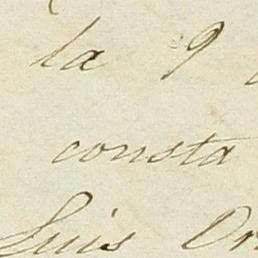 la 9
consta
Luis Or